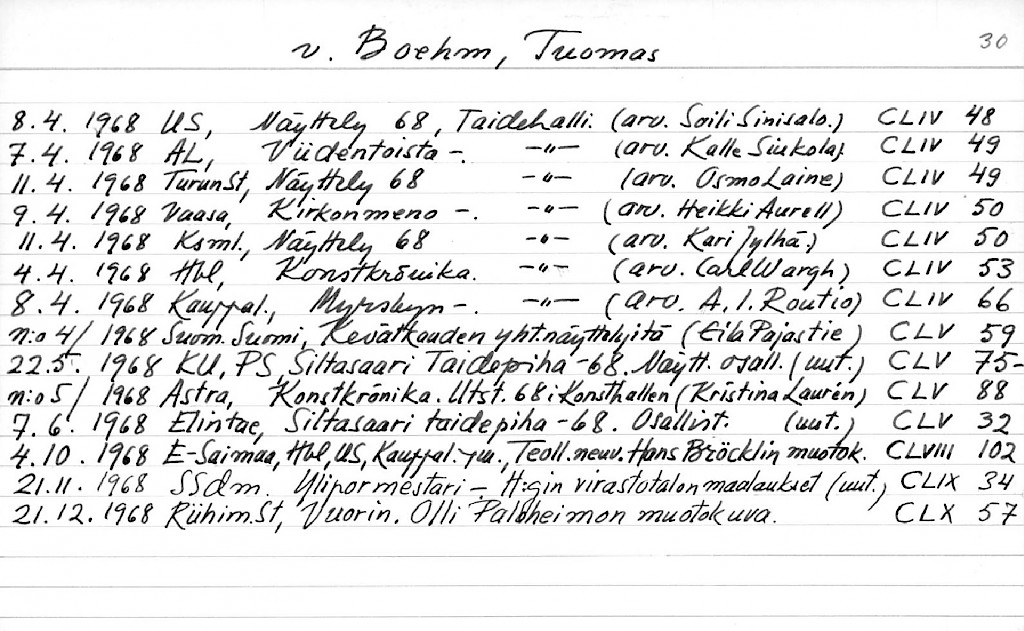 v. Boehm, Tuomas 30
8.4. 1968 US, Näyttely 68, Taidehalli. (arv. Soili Sinisalo.) CLIV 48
7.4. 1968 AL, Viidentoista -. -"- (arv. Kalle Siukola). CLIV 49
11.4. 1968 TurunSt, Näyttely 68 -"- (arv. Osmo Laine) CLIV 49
9.4. 1968 Vaasa, Kirkonmeno -. -"- (arv. Heikki Aurell) CLIV 50
11.4. 1968 Ksml., Näyttely 68 -"- (arv. Kari Jylhä.) CLIV 50
4.4. 1968 Hbl, Konstkrönika. -"- (arv. Carl Wargh.) CLIV 53
8.4. 1968 Kauppal., Myrskyn -. -"- (arv. A. I. Routio) CLIV 66
n:o 4/ 1968 Suom. Suomi, Kevätkauden yht.näyttelyitä (Eila Pajastie) CLV 59
22.5. 1968 KU, PS, Siltasaari Taidepiha -68. Näytt. osall. (uut.) CLV 75-
n:o 5/ 1968 Astra, Konstkrönika. Utst. 68 i Konsthallen (Kristina Laurén) CLV 88
7.6. 1968 Elintae, Siltasaari taidepiha -68. Osallist. (uut.) CLV 32
4.10. 1968 E-Saimaa, Hbl, US, Kauppal. ym., Teoll.neuv. Hans Bröcklin muotok. CLVIII 102
21.11. 1968 SSdm. Ylipormestari - H:gin virastotalon maalaukset (uut.) CLIX 34
21.12. 1968 Riihim.St, Vuorin. Olli Paloheimon muotokuva. CLX 57